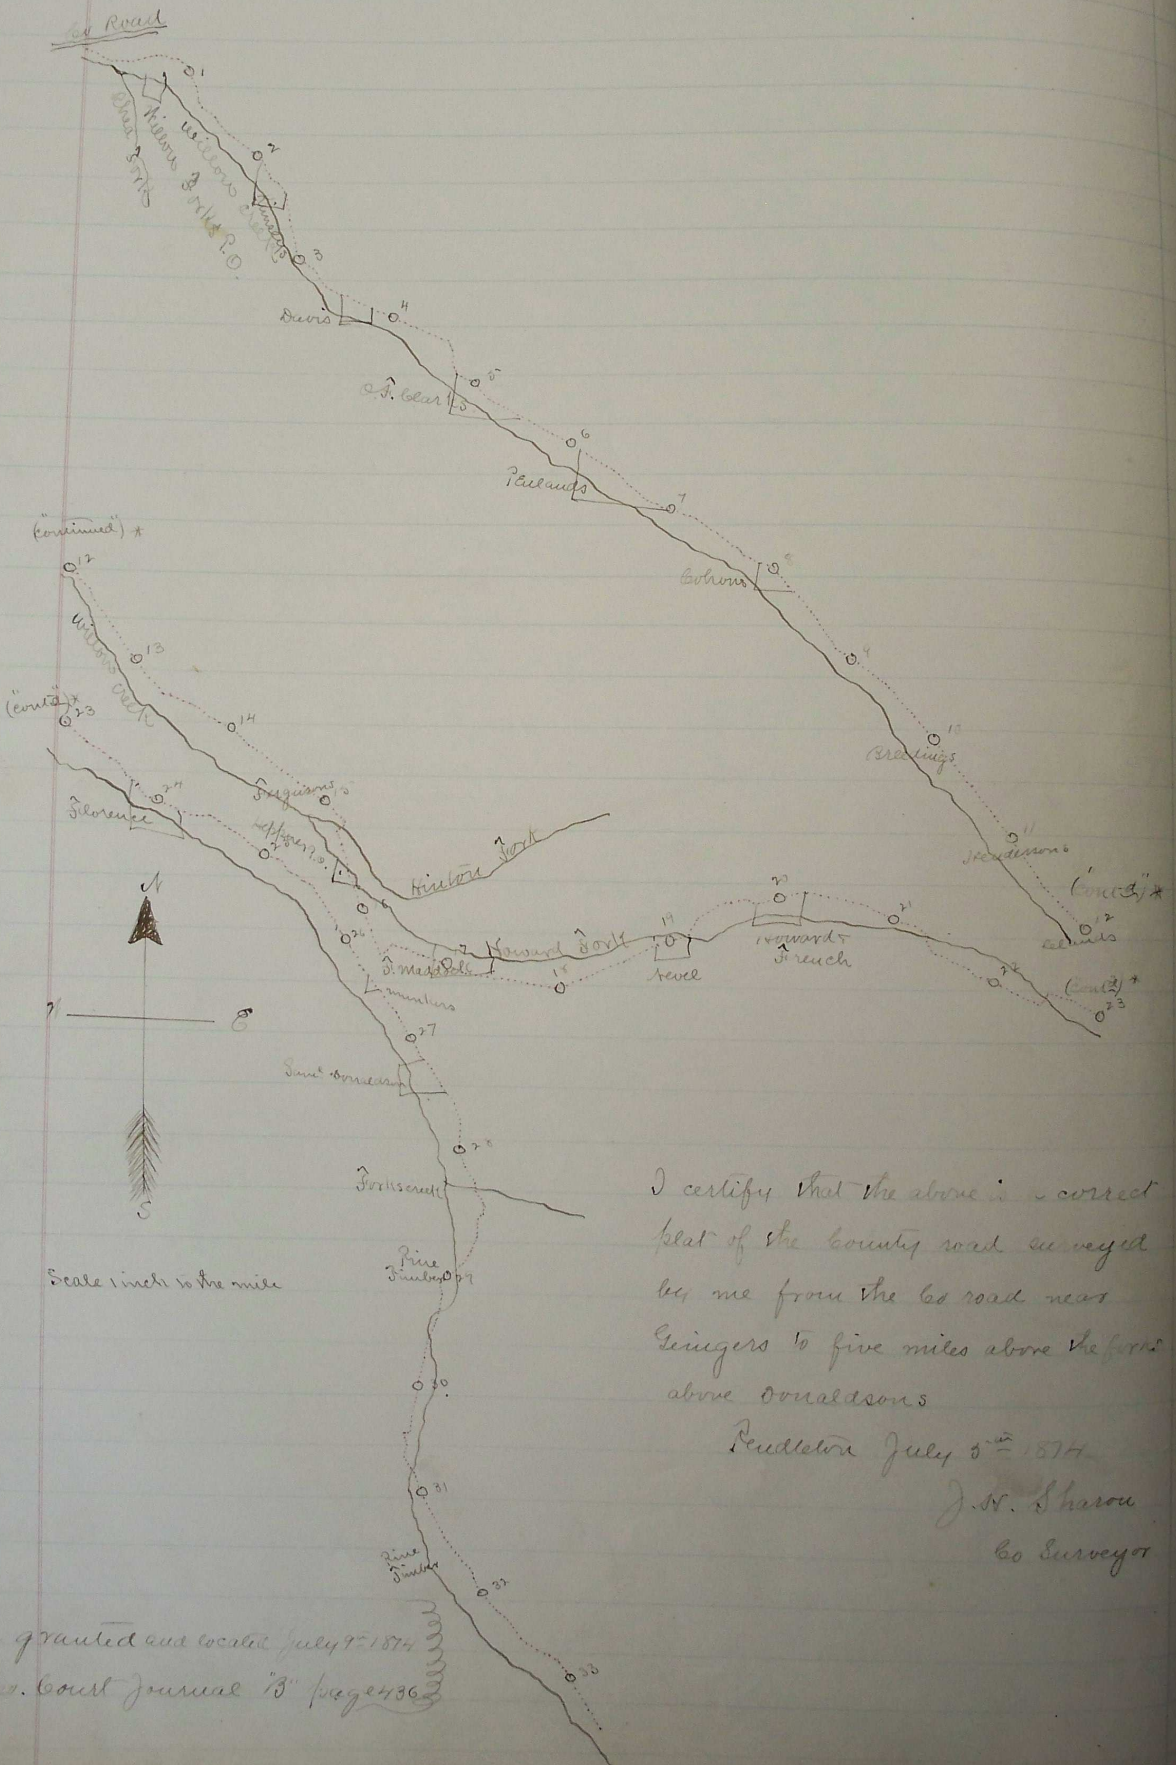 Co Road
1
Rhea Fork
Willow Forks P.O.
Willow Creek
2
3
Davis
4
O.F. Clarks
5
6
Penlands
7
Cohorns
8
9
10
Breedings
11
Hendersons
("Cont'd") *
12
("Continued") *
12
13
Willow Creek
14
("Cont'd") *
23
24
Florence
Fergusons
15
Heppner P.O.
Hinton Fork
16
17
Howard Fork
F. Maddock
18
19
Nevel
20
Howard &
French
21
22
(Cont'd) *
23
26
Munkers
27
Saml Donaldson
28
Forks creek
Pine
Timber
29
30
31
Pine
Timber
32
33
N
W
E
S
Scale 1 inch to the mile
I certify that the above is a correct
plat of the County road surveyed
by me from the Co road near
Geingers to five miles above the forks
above Donaldsons
Pendleton July 5th 1874
J. H. Sharon
Co Surveyor
granted and located July 9th 1874
Court Journal "B" page 436